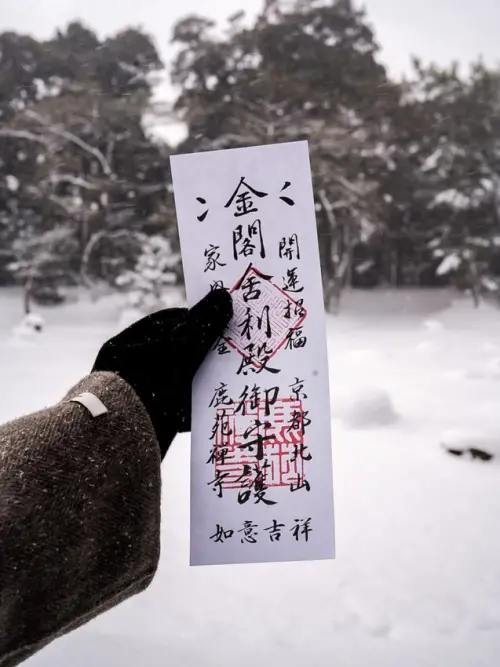 開運招福
京都北山
金閣舎利殿御守護
家
全
鹿苑禅寺
如意吉祥